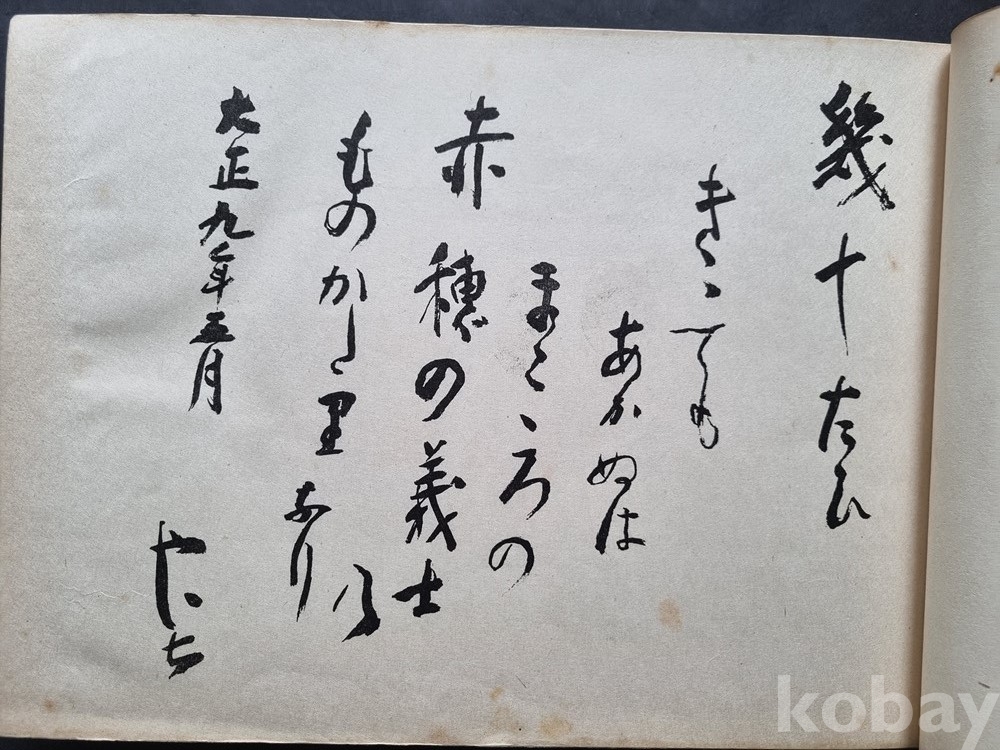 幾十たひ
きゝても
あかぬは
まこゝろの
赤穂の義士の
ものかたりなり
大正九年三月
kobay